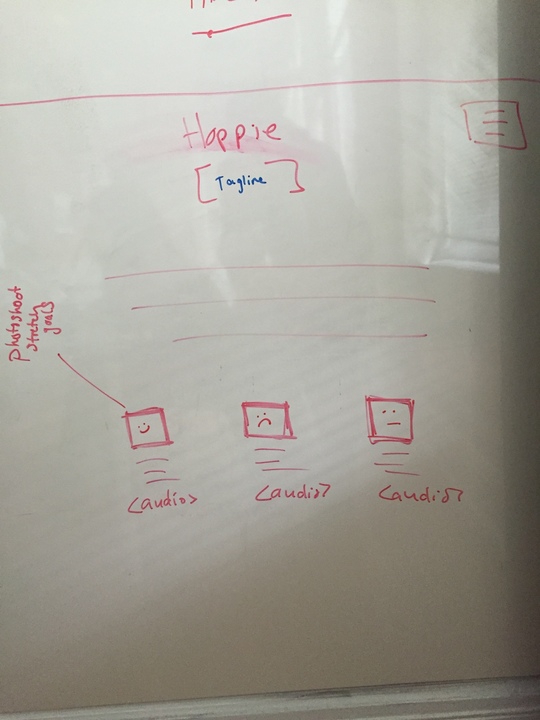 Hoppie
[Tagline]
photoshoot
stretch
goals
<audio>
<audio>
<audio>